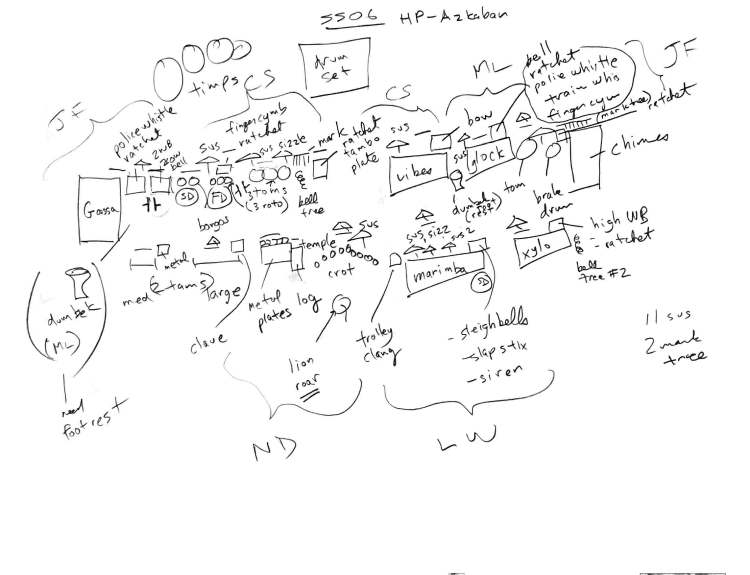 SS06 HP-Azkaban
drum
set
timps
CS
JF
CS
ML
JF
bell
ratchet
police whistle
train whis
fingercym
(marktree)
ratchet
chimes
police whistle
ratchet
2WB
2cow
bell
sus
fingercymb
ratchet
sus
sizzle
mark
ratchet
tambo
plate
sus
bow
vibes
sus
glock
Gassa
SD
FD
3 toms
(3 roto)
bell
tree
bongos
dumbek
(rest)
tom
brake
drum
metal
med (2 tams) large
clave
metal
plates
log
temple
crot
sus
sus, sizz
sus 2
marimba
SD
xylo
high WB
= ratchet
bell
tree #2
dumbek
(ML)
need
footrest
lion
roar
trolley
clang
- sleighbells
- slapstix
- siren
ND
LW
11 sus
2 mark
tree